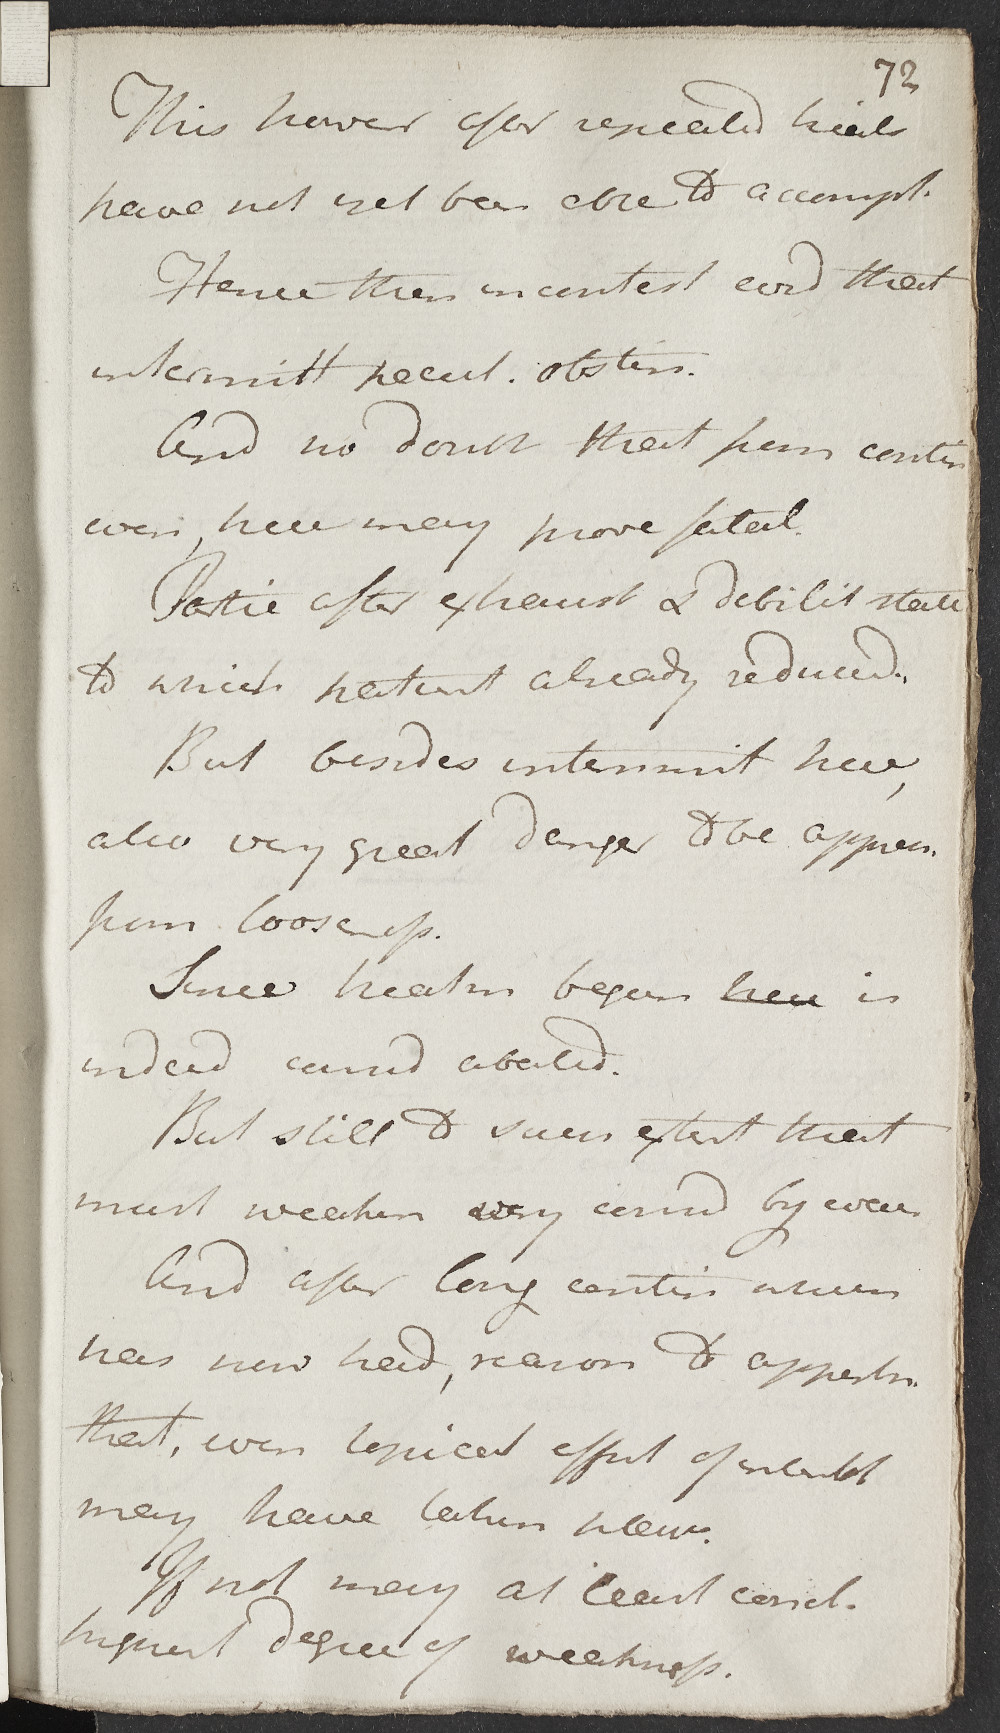 72
This howev after repeated trials
have not yet been able to accompl.
Hence then incontest evid that
intermitt pecul. obstin.
And no doubt that from contin
even, here may prove fatal.
Partic after exhaust & debilit state
to which patient already reduced.
But besides intermit here,
also very great danger to be appreh.
from looseness.
Since treatm begun here is
indeed consid abated.
But still to such extent that
must weaken very consid by even
And after long contin which
has now had, reason to appreh.
that, even topical effect of
may have taken place.
If not may at least consid.
highest degree of weakness.